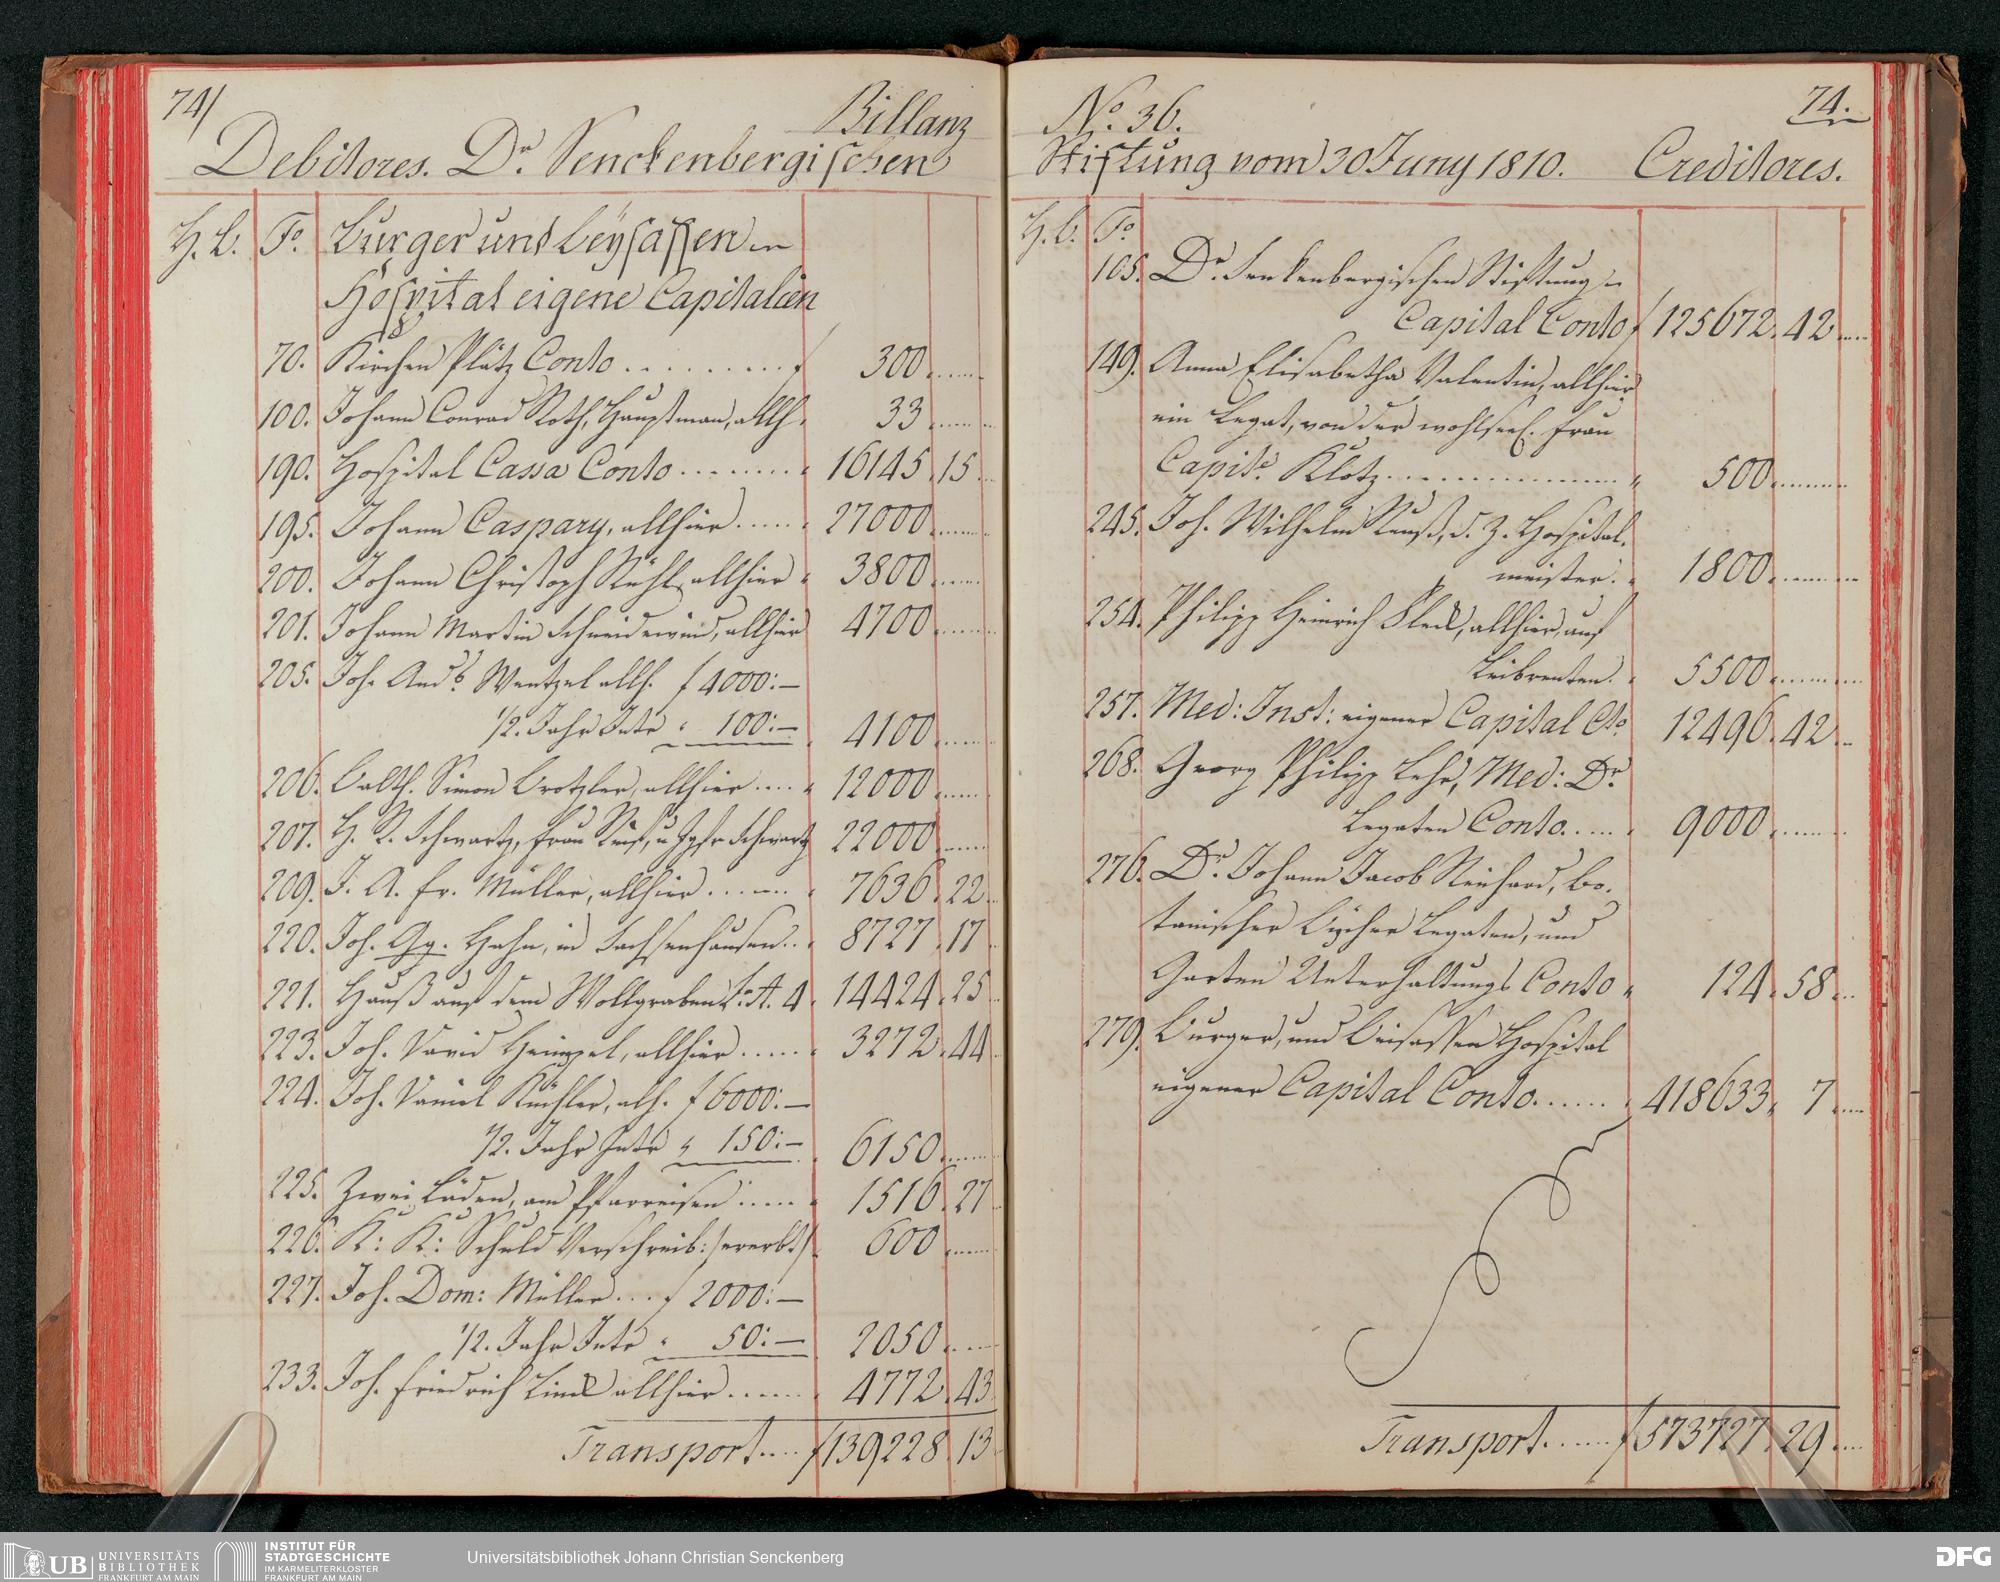 74/
Billanz
Debitores. Dr. Senckenbergischen
H. B. Fo. Burger und Beysassen
Hospital eigene Capitalien
70. Kirchen Plätz Conto .......... f 300 .......
100. Johann Conrad Roth, Hauptman, allh. 33 .......
190. Hospital Cassa Conto ........ 16145. 15
195. Johann Caspary, allhier ..... 27000 .......
200. Johann Christoph Rühl, allhier 3800 .......
201. Johann Martin Schneidewind, allhier 4700 .......
205. Joh. Andr. Wentzel allh. f 4000:—
1/2. Jahr Intr " 100:— 4100 .......
206. Balth. Simon Brotzler, allhier .... " 12000 .......
207. H. R. Schwartz, Frau Reuß, u Jgfr Schwartz 22000 .......
209. J. A. Fr. Müller, allhier ....... 7636. 22
220. Joh. Gg. Hahn, in Sachsenhausen .. 8727. 17
221. Hauß auf dem Wollgraben Lr. A. 4. 14424. 25
223. Joh. David Heimpel, allhier ...... 3272. 44
224. Joh. Daniel Küchler, alh. f 6000:—
1/2. Jahr Intr " 150:— 6150 .......
225. Zwei Läden, am Pfarreisen ..... " 1516. 27
226. K: K: Schuld Verschreib: /ererbt/ 600 .......
227. Joh. Dom: Müller .... f 2000:—
1/2. Jahr Intr " 50:— 2050 .......
233. Joh. Friedrich Linck allhier ....... 4772. 43
Transport .... f 139228. 13
No. 36.
74.
Stiftung vom 30 Juny 1810. Creditores.
H. B. Fo.
105. Dr. Senkenbergischen Stiftung
Capital Conto f 125672. 42 ....
149. Anna Elisabetha Valentin, allhier
ein Legat, von der wohlseel. Frau
Capit. Klotz ................ " 500 .........
245. Joh. Wilhelm Reuß, d. Z. Hospital.
meister. " 1800 .........
254. Philipp Heinrich Fleck, allhier, auf
Leibrenten. " 5500 .........
257. Med: Inst: eigener Capital Cto. 12496. 42 ...
268. Georg Philipp Lehr, Med: Dr.
Legaten Conto ..... 9000 ........
276. Dr. Johann Jacob Reinhard, bo.
tanischer Bücher Legaten, und
Garten Unterhaltungs Conto " 124. 58 ...
279. Burger, und Beisassen Hospital
eigener Capital Conto ....... 418633. 7 ....
Transport ....... f 573727. 29 ....
UB UNIVERSITÄTS
BIBLIOTHEK
FRANKFURT AM MAIN
INSTITUT FÜR
STADTGESCHICHTE
IM KARMELITERKLOSTER
FRANKFURT AM MAIN
Universitätsbibliothek Johann Christian Senckenberg
DFG